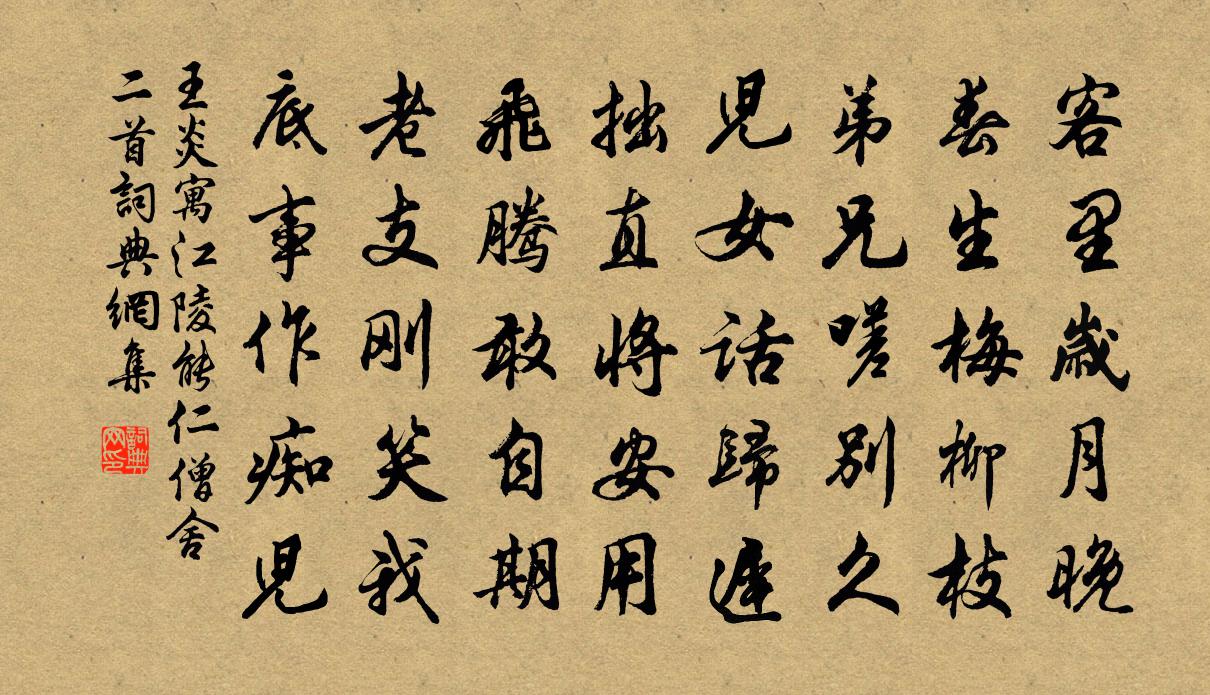 客里歲月晚
春生梅柳枝
弟兄嗟別久
兒女話歸遲
拙直將安用
飛騰敢自期
老支剛笑我
底事作痴兒
王炎寓江陵能仁僧舍
二首詞典網集
詞典網印